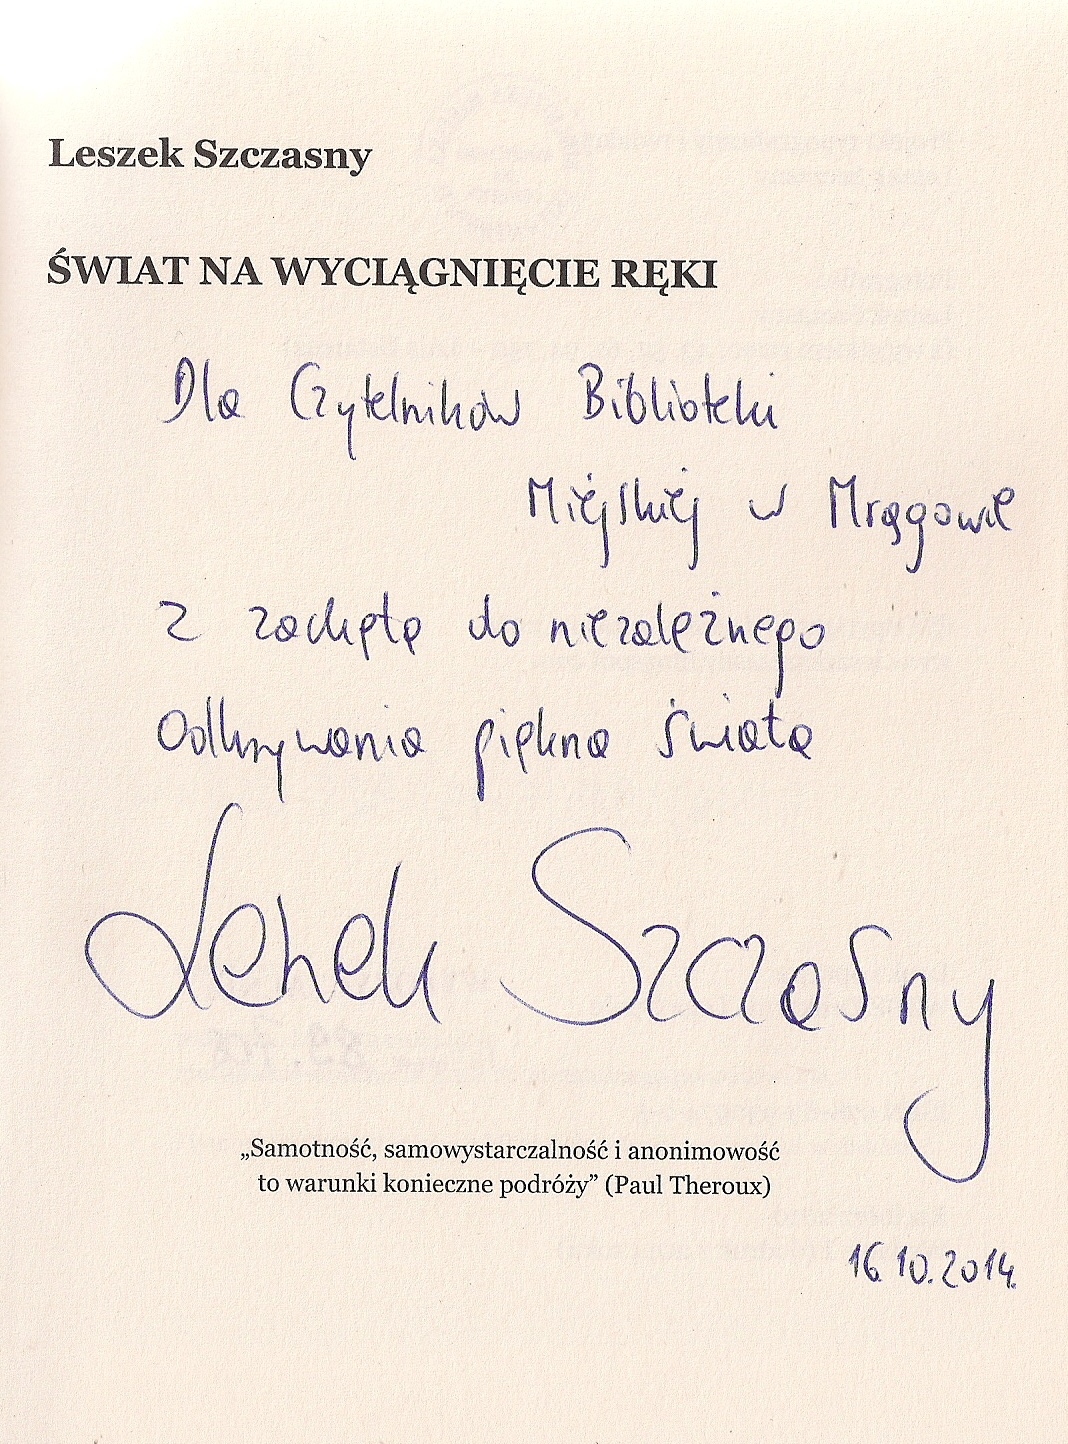 Leszek Szczasny
ŚWIAT NA WYCIĄGNIĘCIE RĘKI
Dla Czytelników Biblioteki
Miejskiej w Mrągowie
z zachętą do niezależnego
odkrywania piękna świata
Leszek Szczasny
„Samotność, samowystarczalność i anonimowość
to warunki konieczne podróży” (Paul Theroux)
16.10.2014.